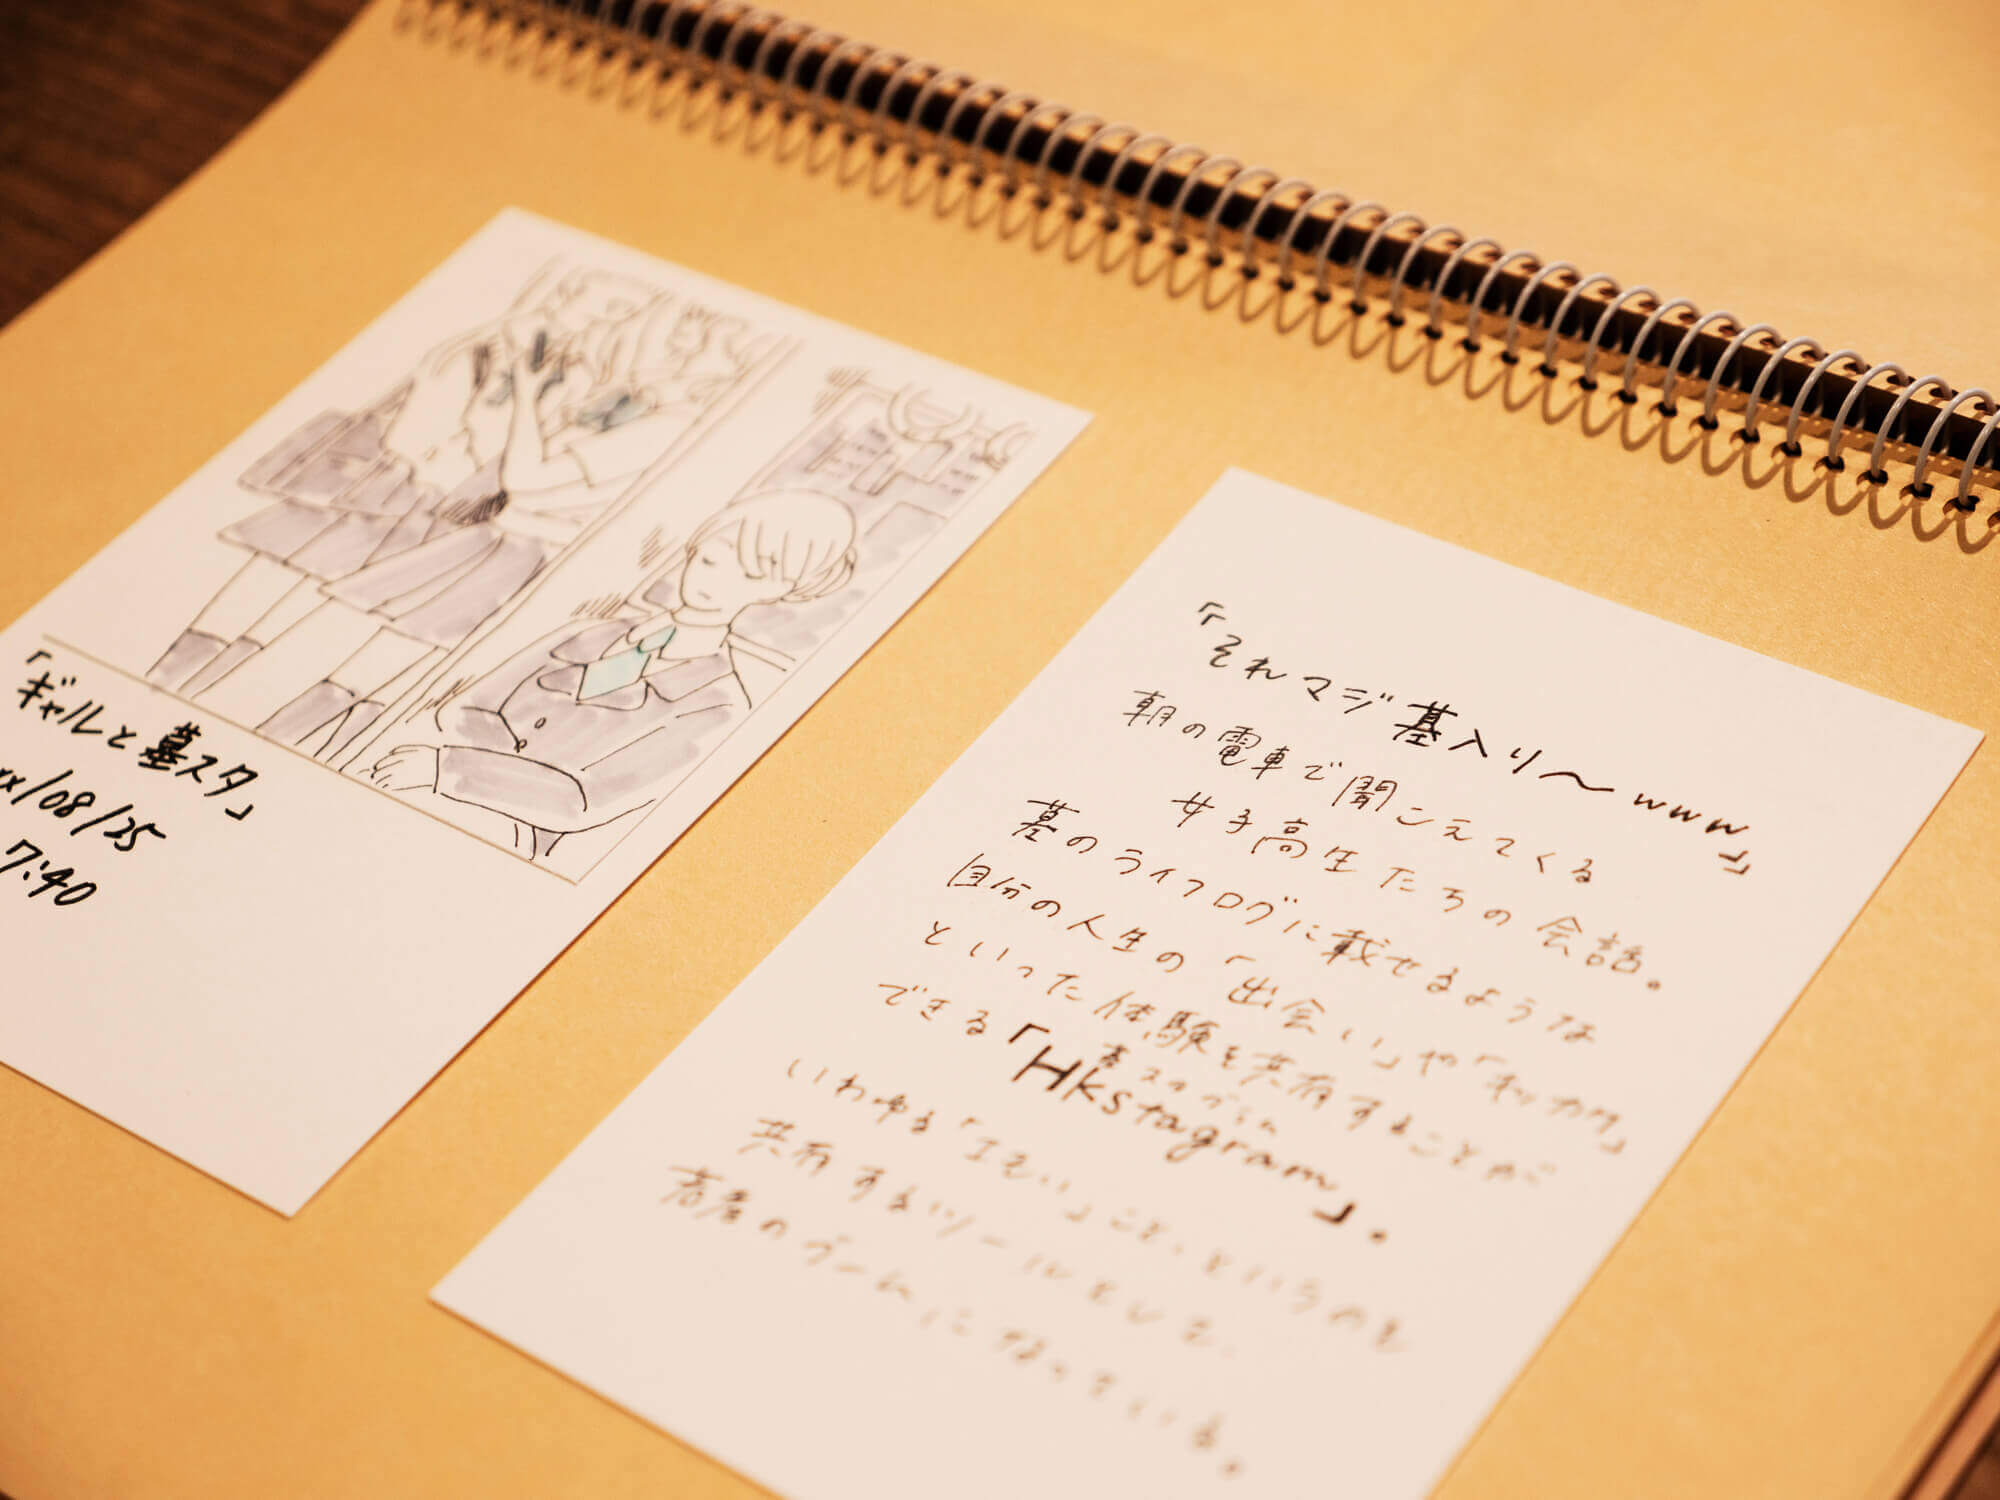 「ギャルと墓スタ」
xx/08/25
7:40
「それマジ墓入り〜www」
朝の電車で聞こえてくる
女子高生たちの会話。
墓のライフログに載せるような
自分の人生の「出会い」や「キッカケ」
といった体験を共有することが
できる「HKstagram」。
いわゆる「エモい」こと、というのを
共有するツールとして、
若者のブームになっている。